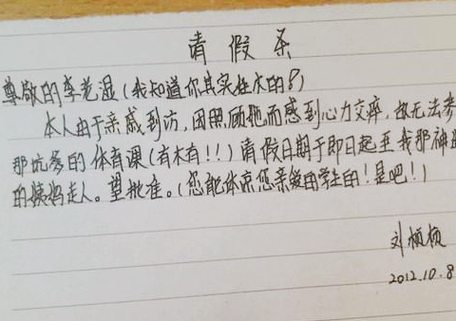 请 假 条
尊敬的李老湿(我知道你其实挺水的!)
本人由于亲戚到访,因照顾她而感到心力交瘁,故无法参
那坑爹的体育课(有木有!!)请假日期于即日起至我那神
的姨妈走人。望批准。(您能体谅您亲爱的学生的!是吧!)
刘
2012.10.8